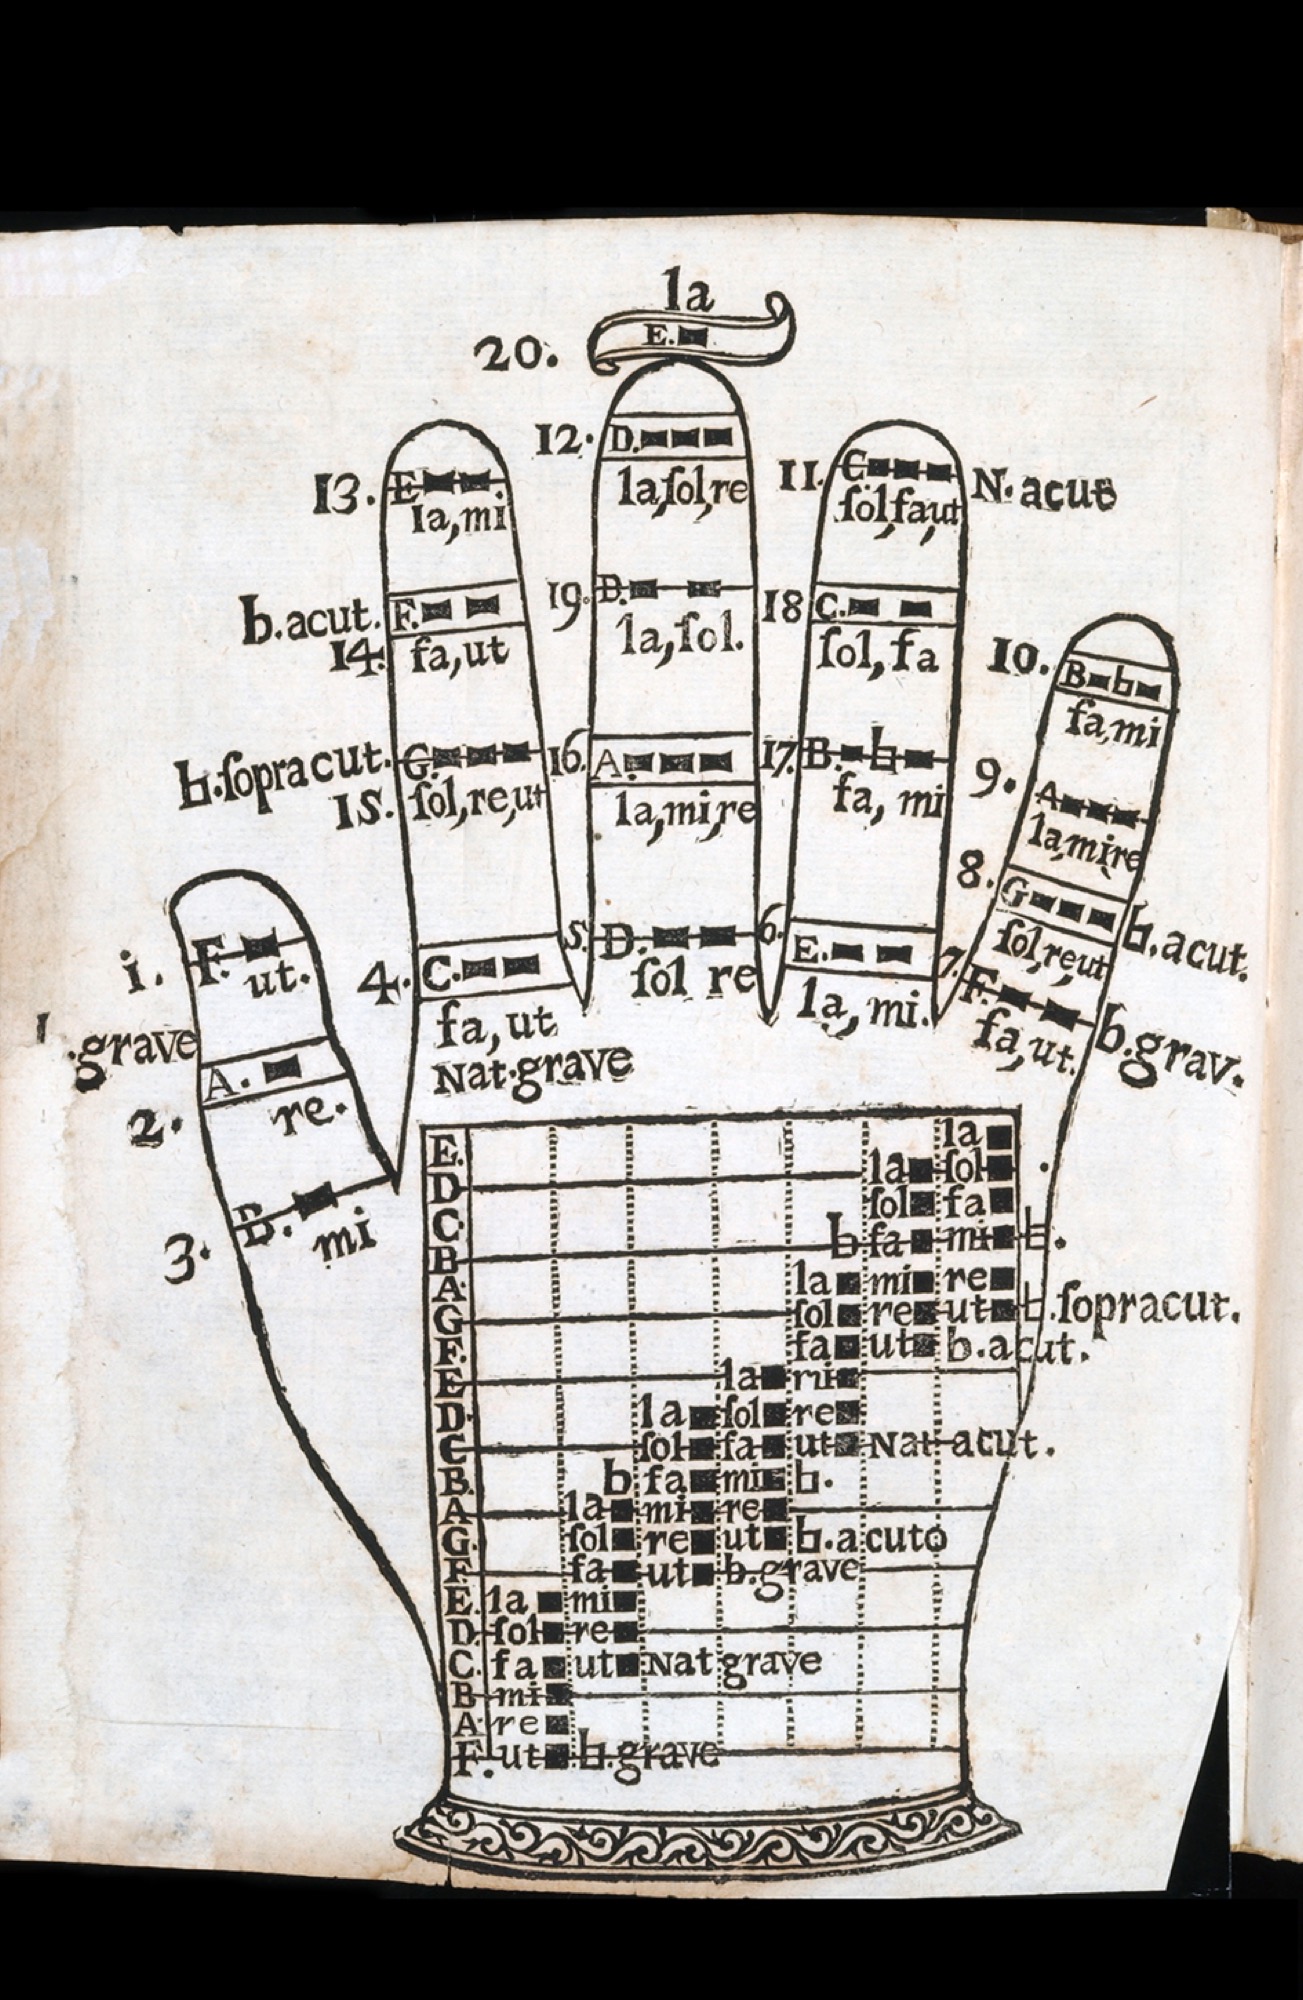 la
20. E.
12. D.
la,ſol,re
13. E
la,mi
11. C
ſol,fa,ut
N. acut
b.acut. F.
14. fa,ut
19. D.
la,ſol.
18 C.
ſol,fa
10. B b
fa,mi
♮.ſopracut. G.
15. ſol,re,ut
16. A.
la,mi,re
17. B. b
fa, mi
9. A
la,mi,re
8. G
ſol,re,ut
♮.acut.
1. F.
ut.
grave
2. A.
re.
3. B.
mi
4. C.
fa,ut
Nat.grave
5. D.
ſol re
6. E.
la, mi.
7. F.
fa,ut.
b.grav.
E. la
D la ſol
C ſol fa
B b fa mi ♮.
A la mi re
G ſol re ut ♮.ſopracut.
F. fa ut b.acut.
E la mi
D la ſol re
C ſol fa ut Nat acut.
B. b fa mi ♮.
A la mi re
G ſol re ut ♮.acuto
F fa ut b.grave
E. la mi
D. ſol re
C. fa ut Nat grave
B mi
A re
F. ut ♮.grave